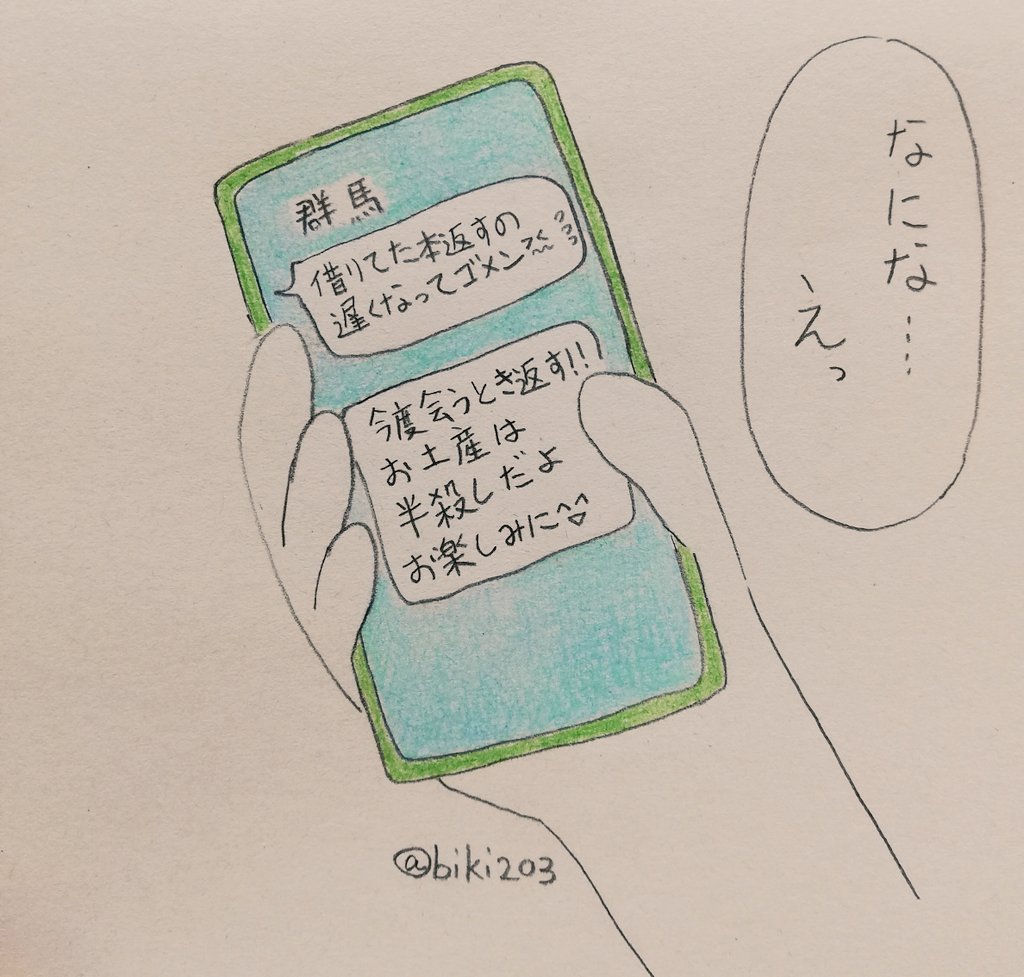 なにな…
えっ
群馬
借りてた本返すの
遅くなってゴメン
今度会うとき返す!!
お土産は
半殺しだよ
お楽しみに^^
@biki203